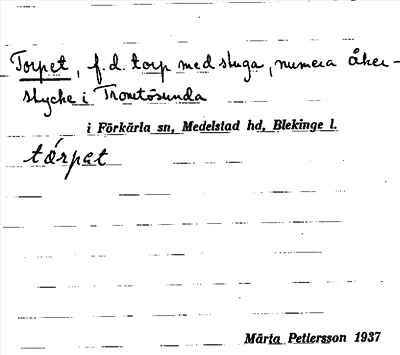 Torpet, f.d. torp med stuga, numera åker-
stycke i Tromtösunda
i Förkärla sn, Medelstad hd, Blekinge l.
tórpat
Märta Petlersson 1937